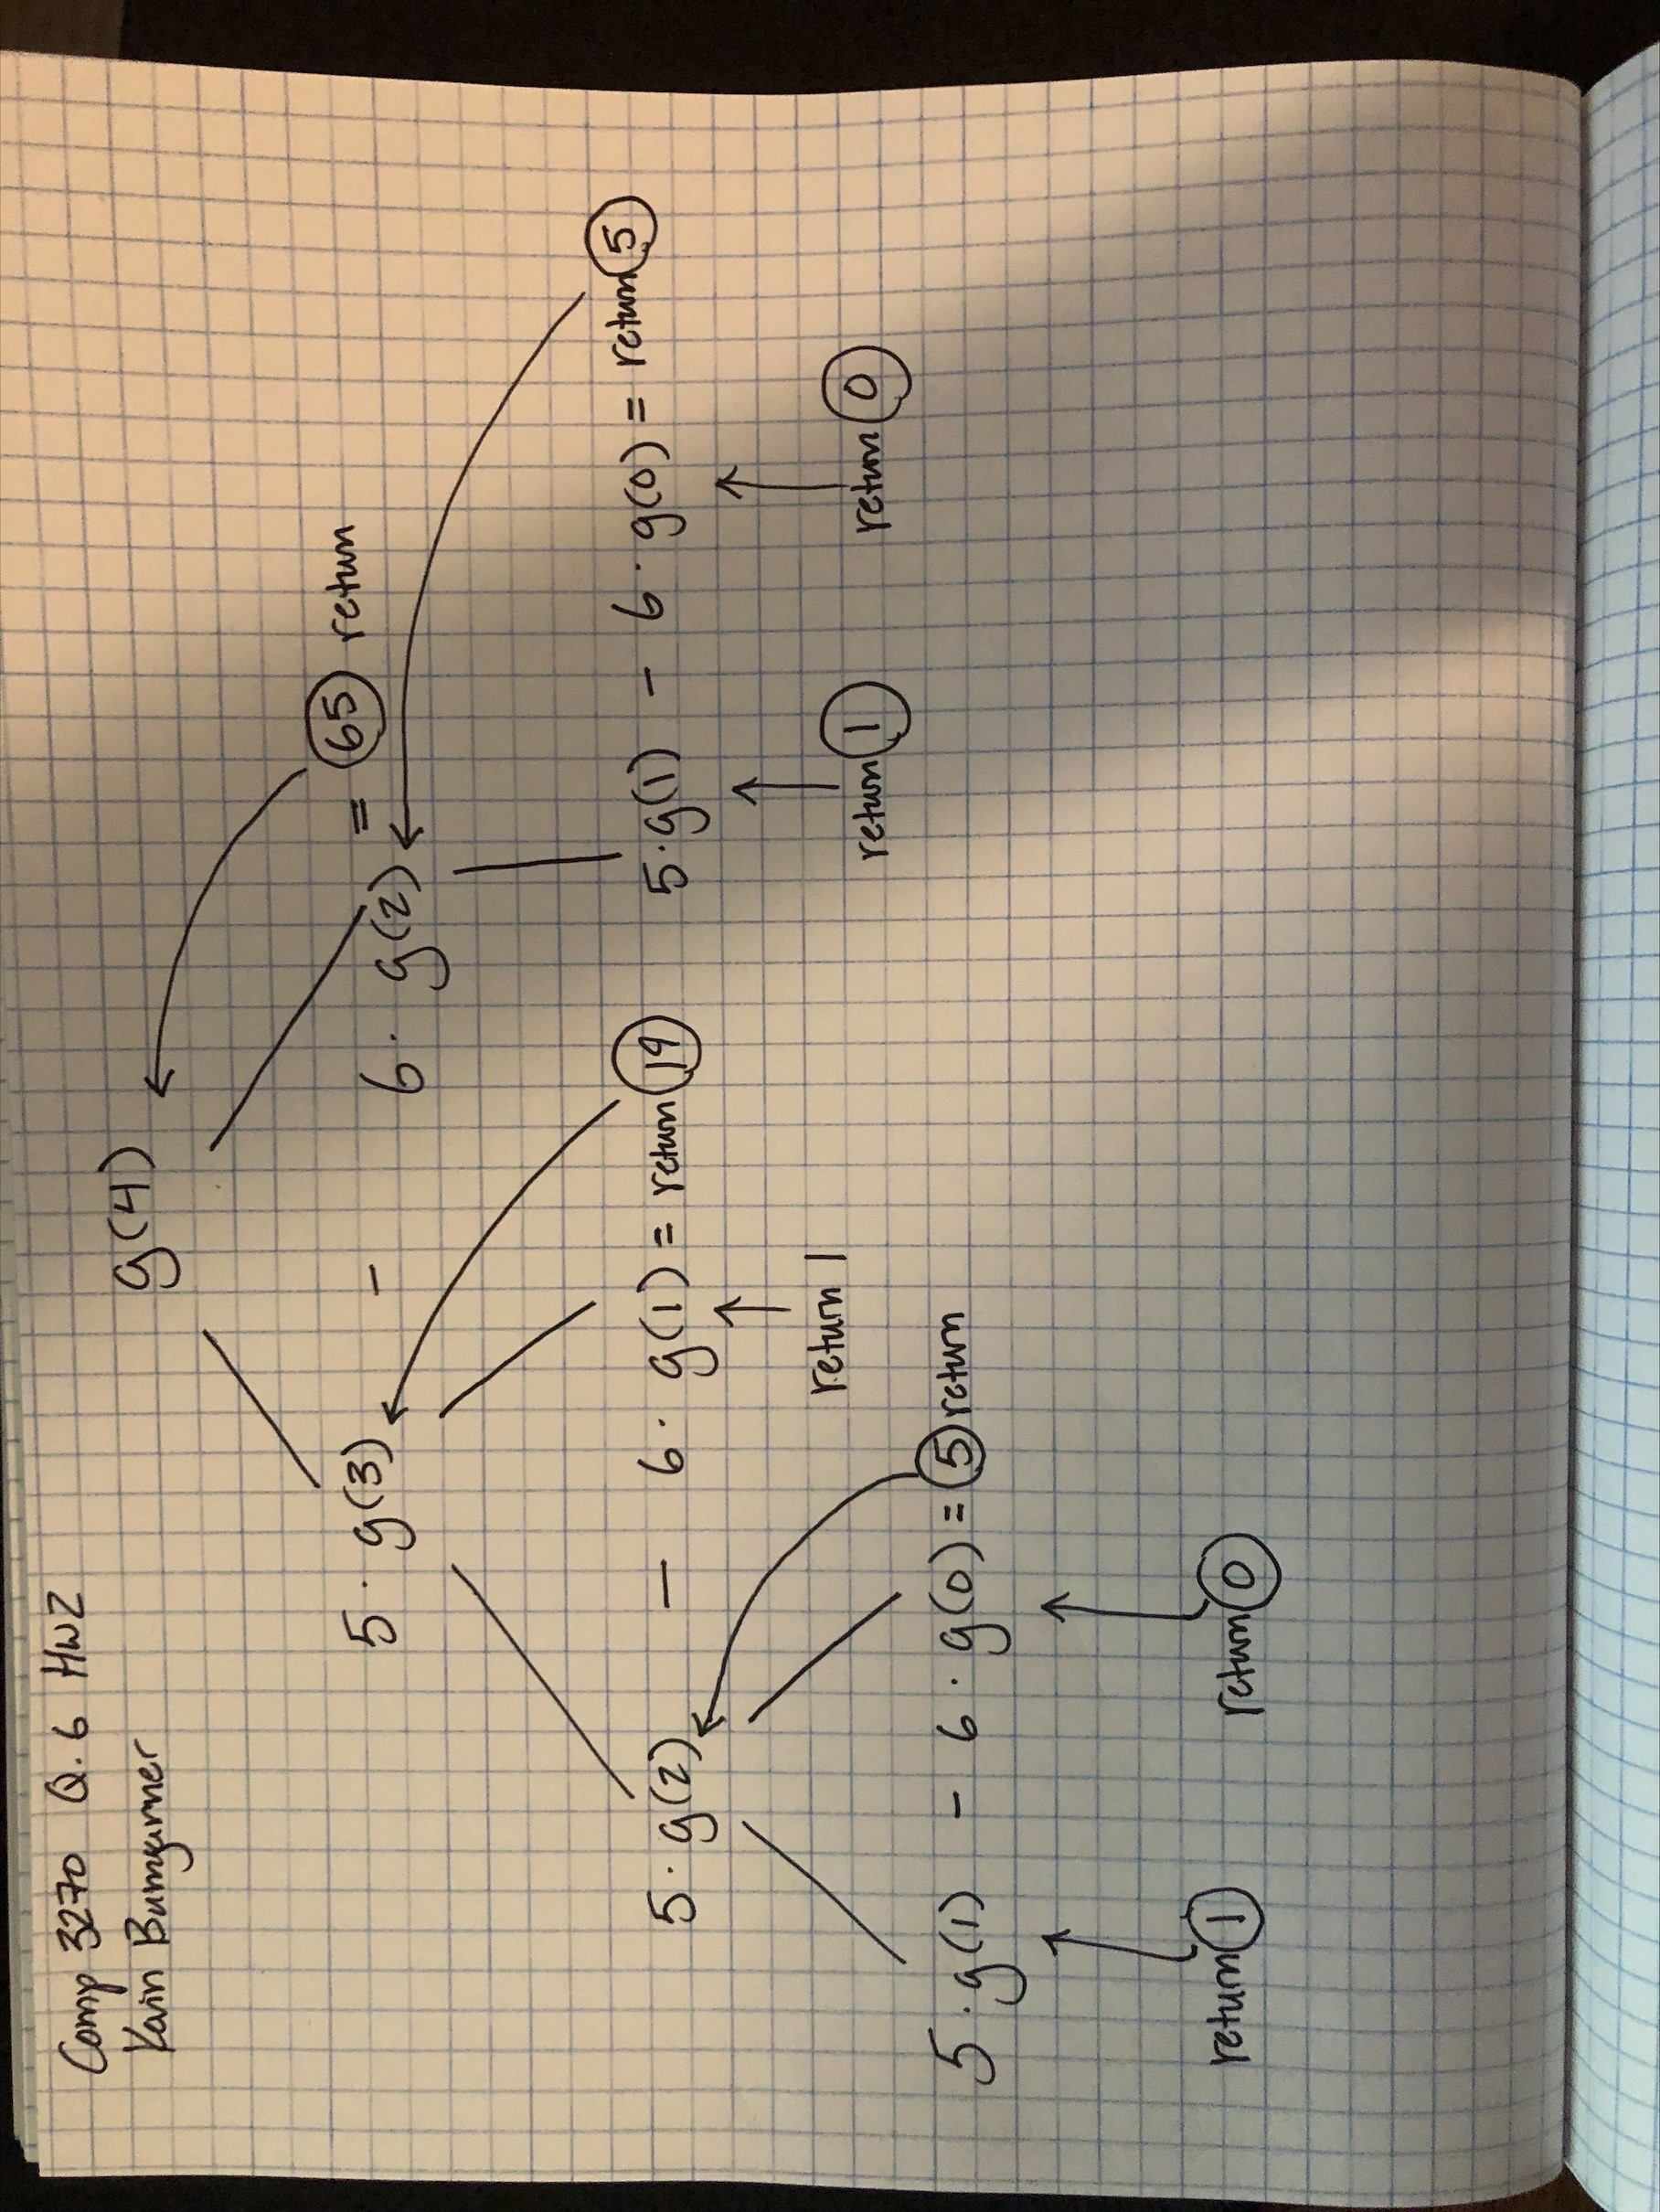 Comp 3270 Q.6 HW2
Kavin Bumgarner
g(4)
5 · g(3) - 6 · g(2) = 65 return
5 · g(2) - 6 · g(1) = return 19
5 · g(1) - 6 · g(0) = return 5
return 1
return 1
return 0
5 · g(1) - 6 · g(0) = 5 return
return 1
return 0